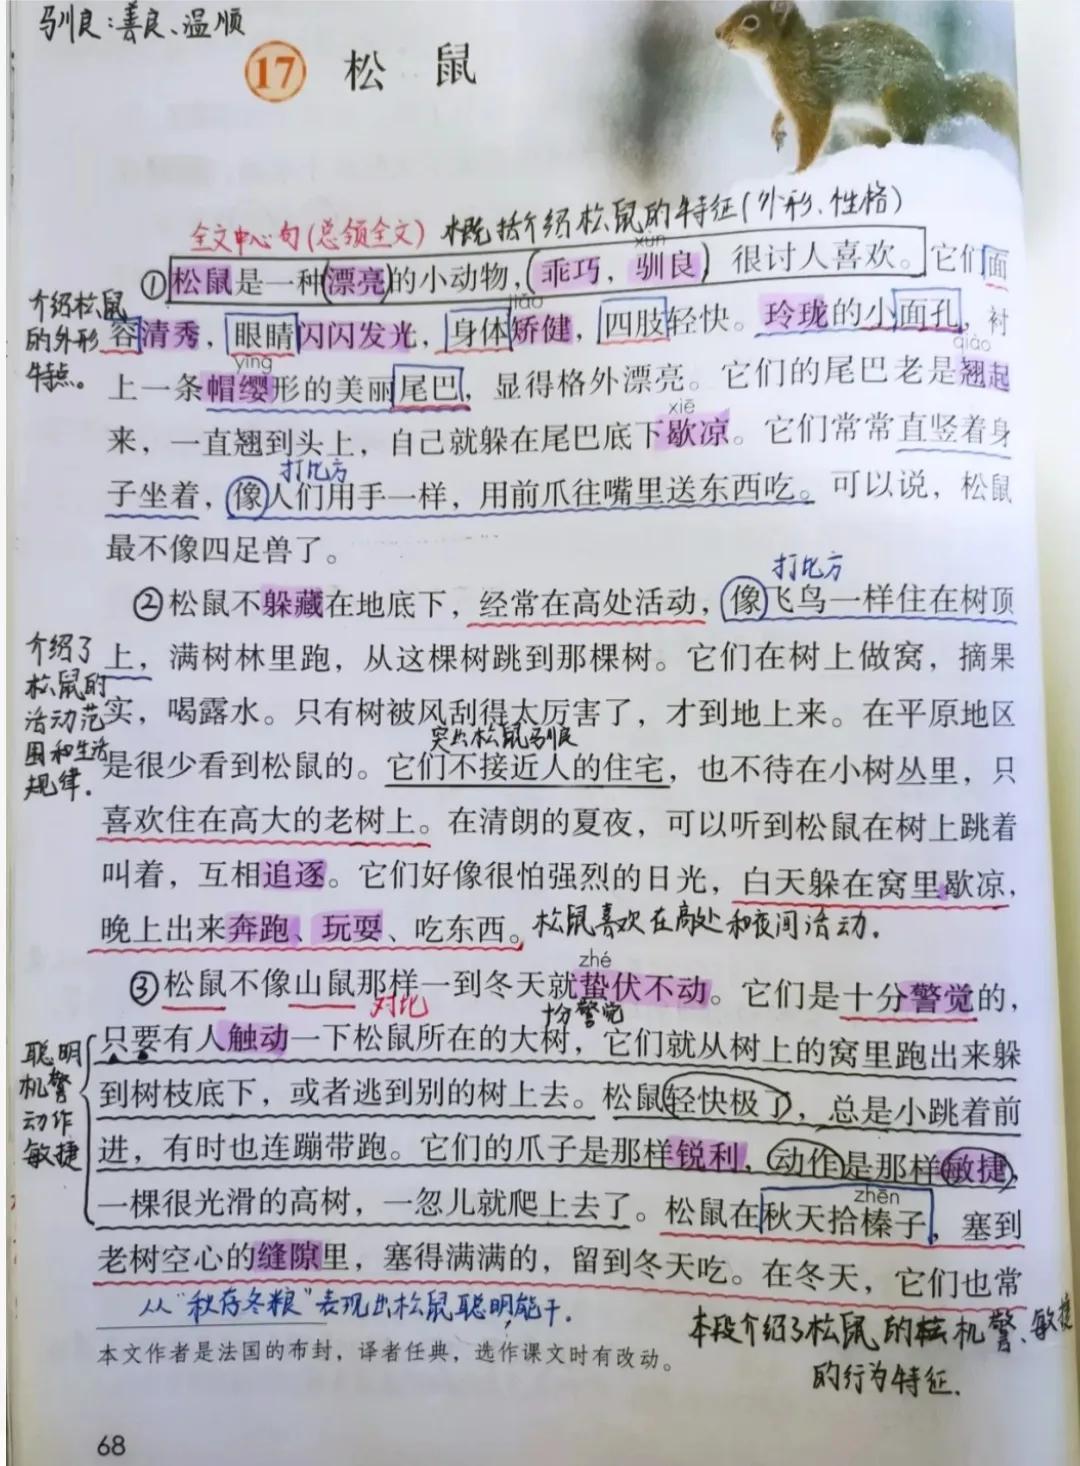 驯良：善良、温顺
17 松鼠
全文中心句(总领全文) 概括介绍松鼠的特征(外形、性格)
xùn
①松鼠是一种漂亮的小动物，乖巧，驯良，很讨人喜欢。它们面
jiǎo
容清秀，眼睛闪闪发光，身体矫健，四肢轻快。玲珑的小面孔，衬
介绍松鼠
的外形
特点。
yīng
qiào
上一条帽缨形的美丽尾巴，显得格外漂亮。它们的尾巴老是翘起
xiē
来，一直翘到头上，自己就躲在尾巴底下歇凉。它们常常直竖着身
打比方
子坐着，像人们用手一样，用前爪往嘴里送东西吃。可以说，松鼠
最不像四足兽了。
打比方
②松鼠不躲藏在地底下，经常在高处活动，像飞鸟一样住在树顶
上，满树林里跑，从这棵树跳到那棵树。它们在树上做窝，摘果
介绍了
松鼠的
活动范
围和生活
规律.
实，喝露水。只有树被风刮得太厉害了，才到地上来。在平原地区
突出松鼠驯良
是很少看到松鼠的。它们不接近人的住宅，也不待在小树丛里，只
喜欢住在高大的老树上。在清朗的夏夜，可以听到松鼠在树上跳着
叫着，互相追逐。它们好像很怕强烈的日光，白天躲在窝里歇凉，
晚上出来奔跑、玩耍、吃东西。 松鼠喜欢在高处和夜间活动.
zhé
③松鼠不像山鼠那样一到冬天就蛰伏不动。它们是十分警觉的，
对比
十分警觉
只要有人触动一下松鼠所在的大树，它们就从树上的窝里跑出来躲
聪明
机警
动作
敏捷
到树枝底下，或者逃到别的树上去。松鼠轻快极了，总是小跳着前
进，有时也连蹦带跑。它们的爪子是那样锐利，动作是那样敏捷，
一棵很光滑的高树，一忽儿就爬上去了。松鼠在秋天拾榛子，塞到
zhēn
老树空心的缝隙里，塞得满满的，留到冬天吃。在冬天，它们也常
从“秋存冬粮”表现出松鼠聪明能干.
本段介绍了松鼠的机警、敏捷
的行为特征.
本文作者是法国的布封，译者任典，选作课文时有改动。
68